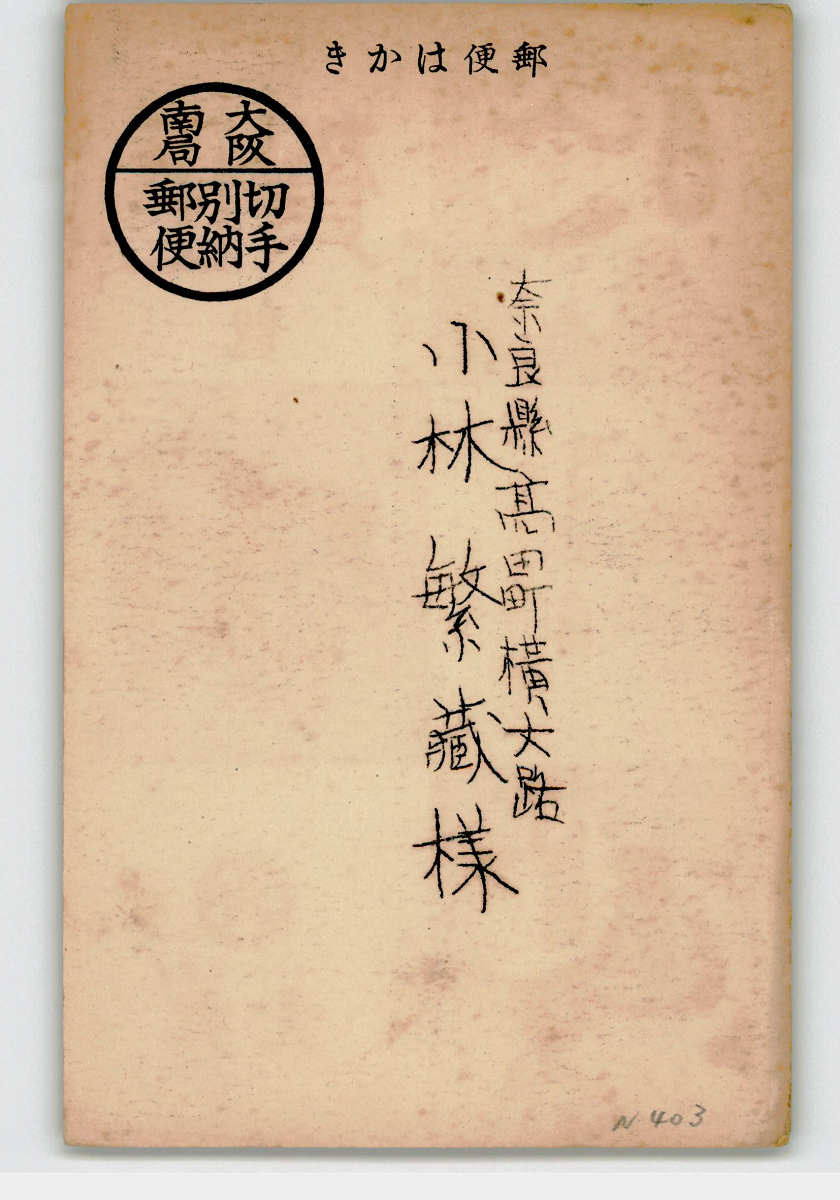 郵便はかき
大阪
南局
切手
別納
郵便
奈良縣高田町橫大路
小林繁藏様
N 403